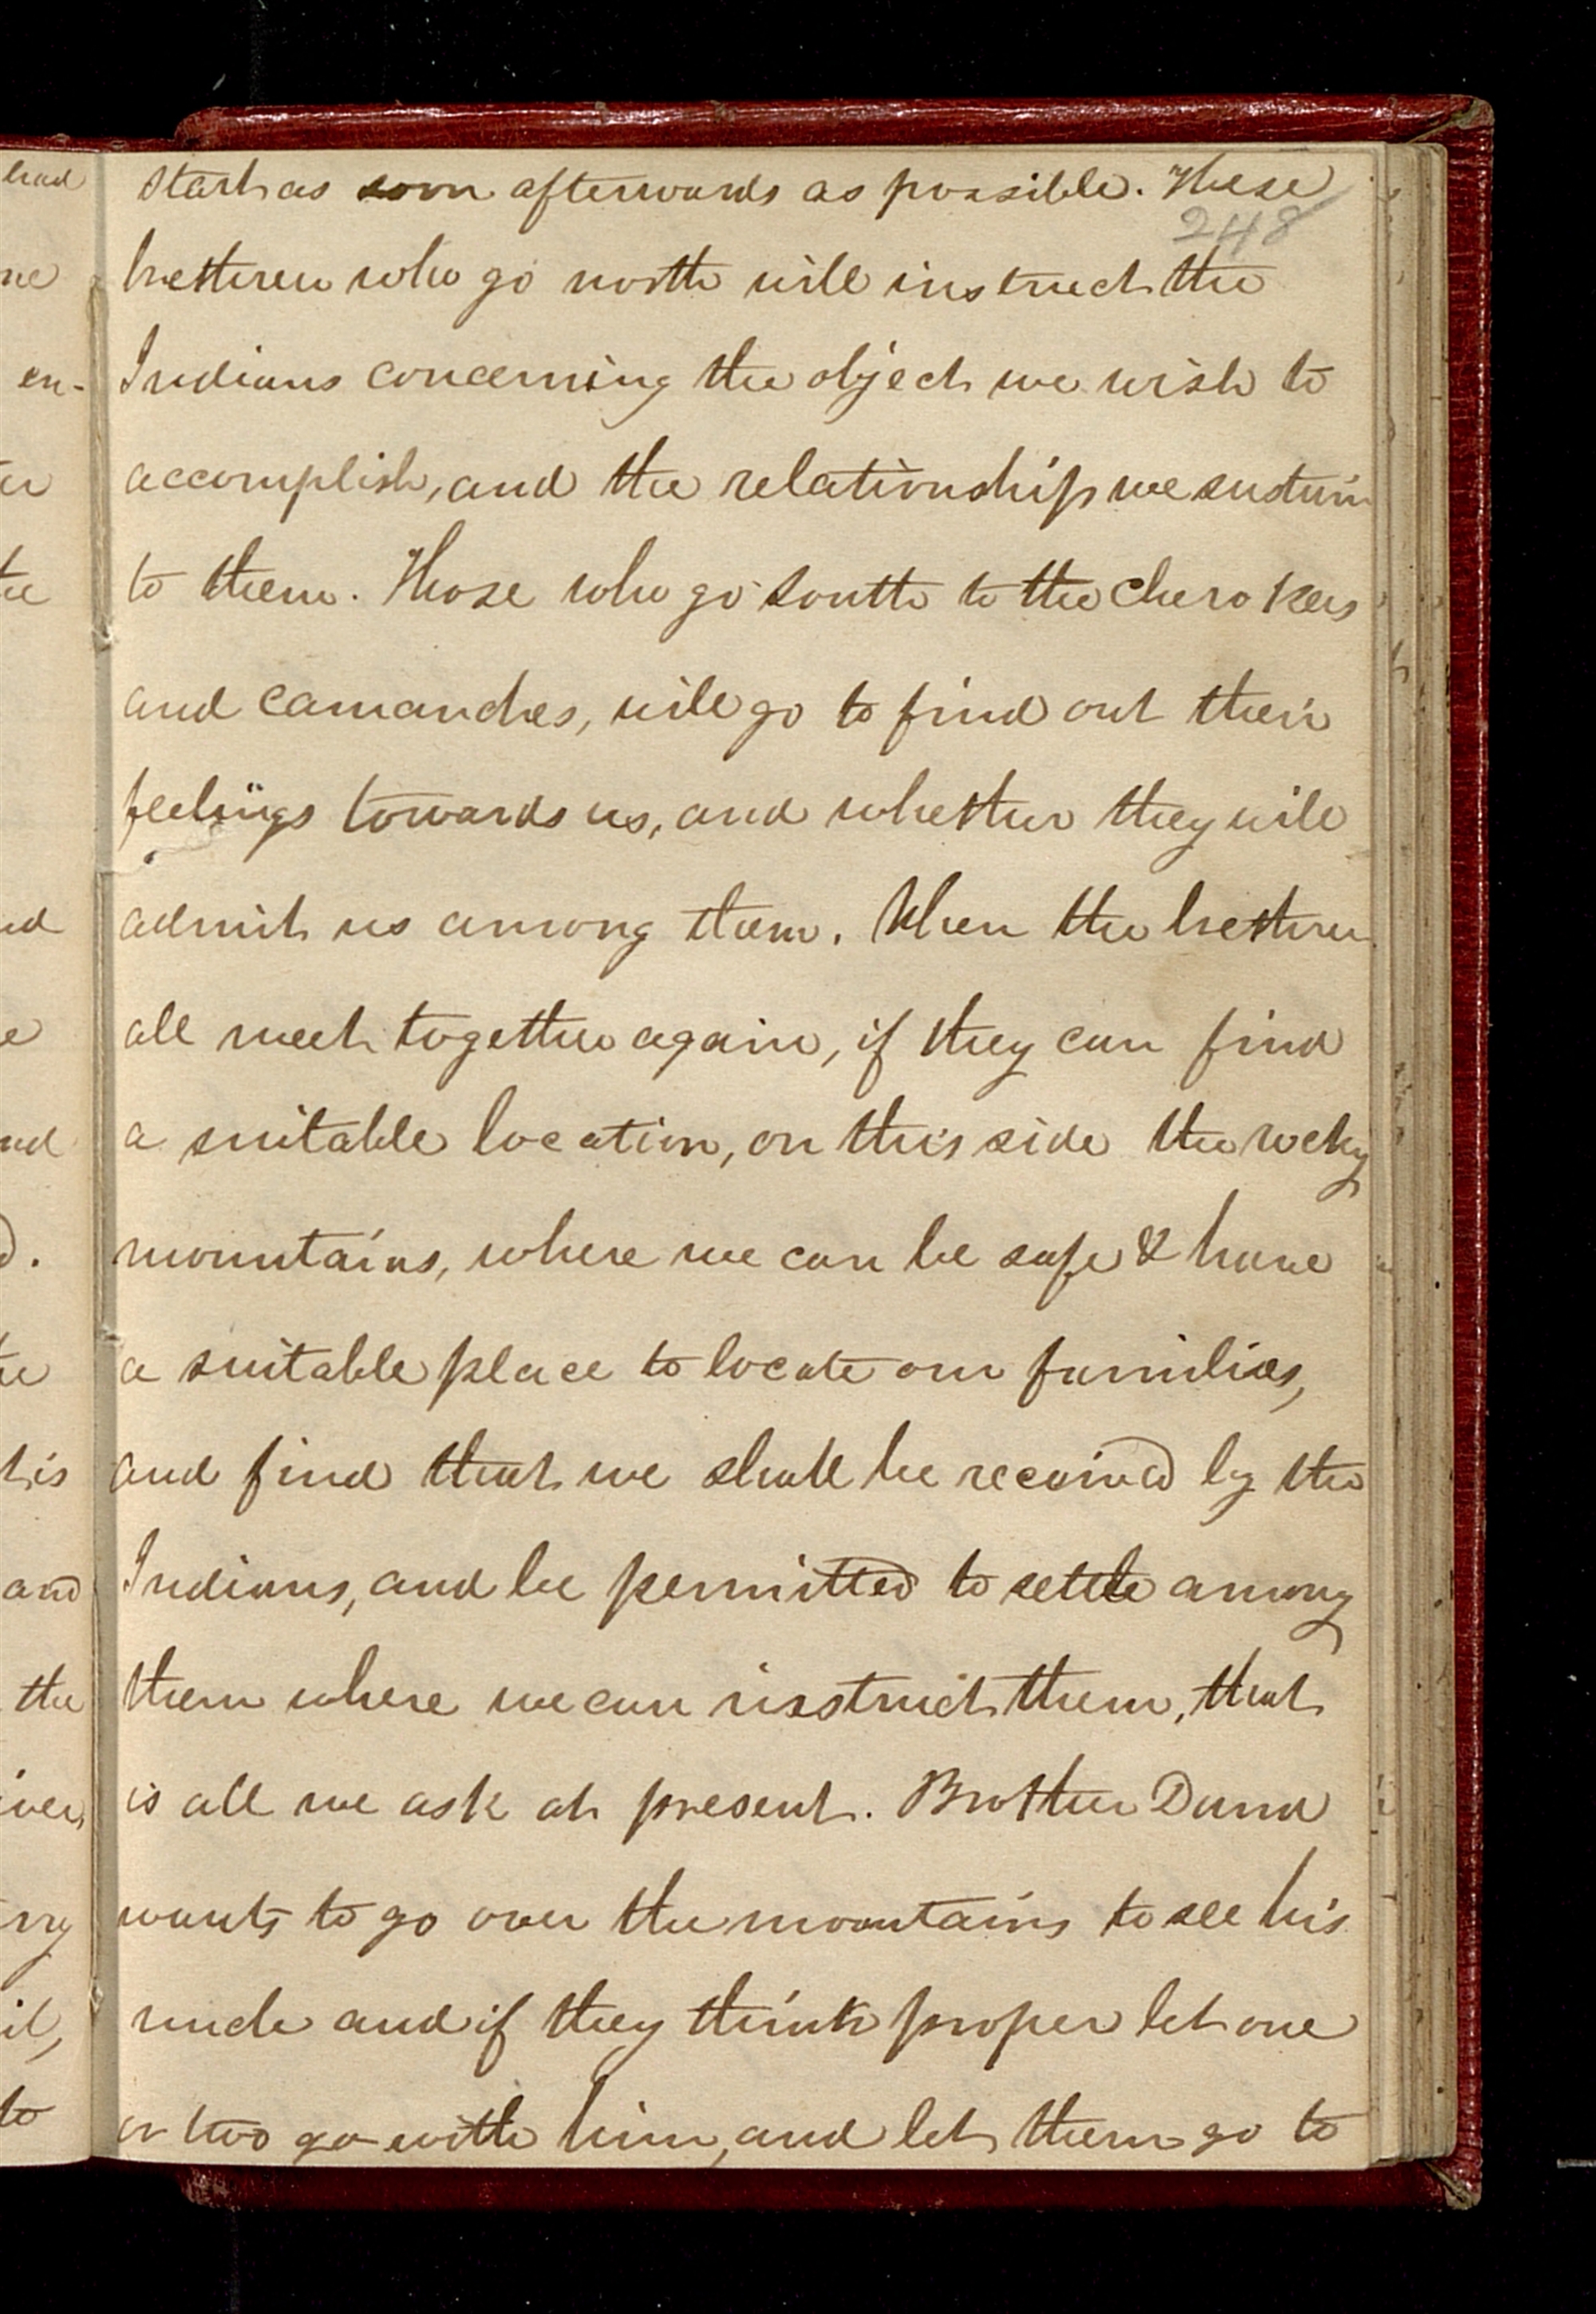 start as soon afterwards as possible. These
248
brethren who go north will instruct the
Indians concerning the object we wish to
accomplish, and the relationship we sustain
to them. Those who go south to the Cherokees
and camanches, will go to find out their
feelings towards us, and whether they will
admit us among them. When the brethren
all meet together again, if they can find
a suitable location, on this side the rocky
mountains, where we can be safe & have
a suitable place to locate our families,
and find that we shall be received by the
Indians, and be permitted to settle among
them where we can instruct them, that
is all we ask at present. Brother Dana
wants to go over the mountains to see his
uncle and if they think proper let one
or two go with him, and let them go to